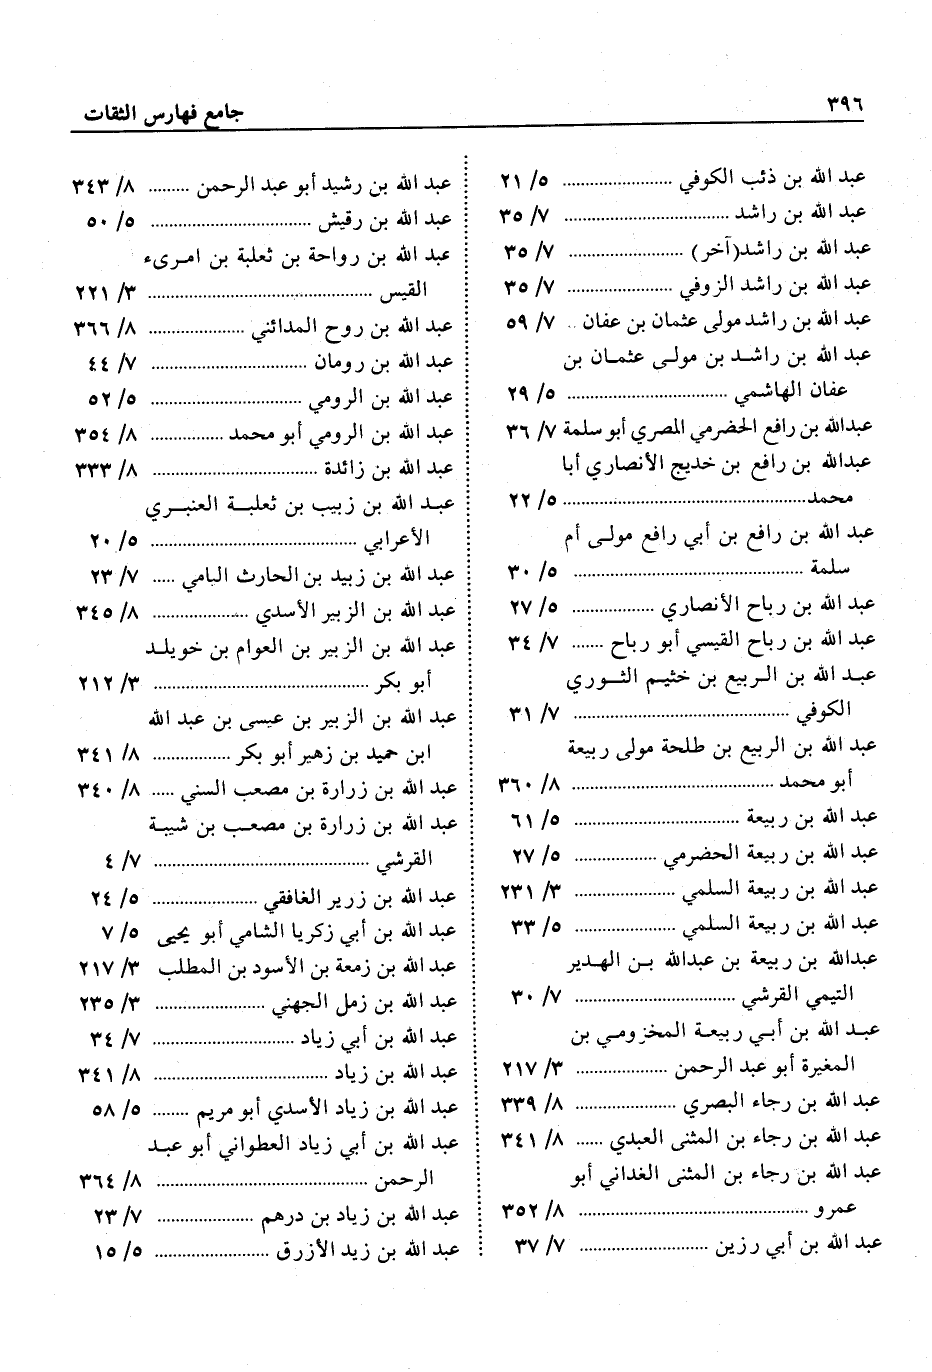 ٣٩٦
جامع فهارس الثقات
عبد الله بن ذئب الكوفي ........................ ٥/ ٢١
عبد الله بن راشد .................................... ٧/ ٣٥
عبد الله بن راشد(آخر) ......................... ٧/ ٣٥
عبد الله بن راشد الزوفي ....................... ٧/ ٣٥
عبد الله بن راشد مولى عثمان بن عفان .. ٧/ ٥٩
عبد الله بن راشد بن مولى عثمان بن
عفان الهاشمي ................................... ٥/ ٢٩
عبدالله بن رافع الحضرمي المصري أبو سلمة ٧/ ٣٦
عبدالله بن رافع بن خديج الأنصاري أبا
محمد..................................................... ٥/ ٢٢
عبد الله بن رافع بن أبي رافع مولى أم
سلمة .................................................. ٥/ ٣٠
عبد الله بن رباح الأنصاري .................. ٥/ ٢٧
عبد الله بن رباح القيسي أبو رباح ....... ٧/ ٣٤
عبد الله بن الربيع بن خثيم الثوري
الكوفي ............................................... ٧/ ٣١
عبد الله بن الربيع بن طلحة مولى ربيعة
أبو محمد ............................................ ٨/ ٣٦٠
عبد الله بن ربيعة .................................... ٥/ ٦١
عبد الله بن ربيعة الحضرمي .................. ٥/ ٢٧
عبد الله بن ربيعة السلمي ...................... ٣/ ٢٣١
عبد الله بن ربيعة السلمي ...................... ٥/ ٣٣
عبدالله بن ربيعة بن عبدالله بن الهدير
التيمي القرشي ................................... ٧/ ٣٠
عبد الله بن أبي ربيعة المخزومي بن
المغيرة أبو عبد الرحمن .................... ٣/ ٢١٧
عبد الله بن رجاء البصري ...................... ٨/ ٣٣٩
عبد الله بن رجاء بن المثنى العبدي ...... ٨/ ٣٤١
عبد الله بن رجاء بن المثنى الغداني أبو
عمرو .................................................. ٨/ ٣٥٢
عبد الله بن أبي رزين ............................ ٧/ ٣٧
عبد الله بن رشيد أبو عبد الرحمن ......... ٨/ ٣٤٣
عبد الله بن رقيش ................................... ٥/ ٥٠
عبد الله بن رواحة بن ثعلبة بن امرىء
القيس ................................................. ٣/ ٢٢١
عبد الله بن روح المدائني ..................... ٨/ ٣٦٦
عبد الله بن رومان .................................. ٧/ ٤٤
عبد الله بن الرومي ................................. ٥/ ٥٢
عبد الله بن الرومي أبو محمد ................ ٨/ ٣٥٤
عبد الله بن زائدة .................................... ٨/ ٣٣٣
عبد الله بن زبيب بن ثعلبة العنبري
الأعرابي ............................................. ٥/ ٢٠
عبد الله بن زبيد بن الحارث اليامي ..... ٧/ ٢٣
عبد الله بن الزبير الأسدي ..................... ٨/ ٣٤٥
عبد الله بن الزبير بن العوام بن خويلد
أبو بكر ............................................... ٣/ ٢١٢
عبد الله بن الزبير بن عيسى بن عبد الله
ابن حميد بن زهير أبو بكر ................. ٨/ ٣٤١
عبد الله بن زرارة بن مصعب السني ..... ٨/ ٣٤٠
عبد الله بن زرارة بن مصعب بن شيبة
القرشي ............................................... ٧/ ٤
عبد الله بن زرير الغافقي ....................... ٥/ ٢٤
عبد الله بن أبي زكريا الشامي أبو يحيى ٥/ ٧
عبد الله بن زمعة بن الأسود بن المطلب ٣/ ٢١٧
عبد الله بن زمل الجهني ........................ ٣/ ٢٣٥
عبد الله بن أبي زياد ............................... ٧/ ٣٤
عبد الله بن زياد ...................................... ٨/ ٣٤١
عبد الله بن زياد الأسدي أبو مريم ........ ٥/ ٥٨
عبد الله بن أبي زياد العطواني أبو عبد
الرحمن .............................................. ٨/ ٣٦٤
عبد الله بن زياد بن درهم ..................... ٧/ ٢٣
عبد الله بن زيد الأزرق ......................... ٥/ ١٥